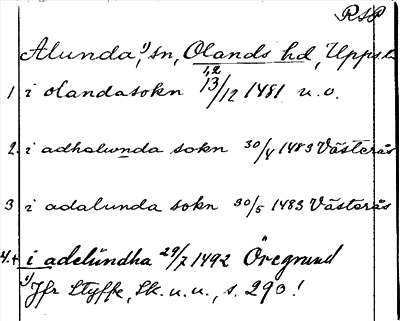 RSP
Alunda,¹) sn, Olands hd, Upps. l.
1 i olandasokn 13/12 1481 u. o.
2. i adhalunda sokn 30/4 1483 Västerås
3 i adalunda sokn 30/5 1483 Västerås
4.+ i adelundha 29/7 1492 Öregrund
¹) Jfr Styffe, Sk. u. u., s. 290!